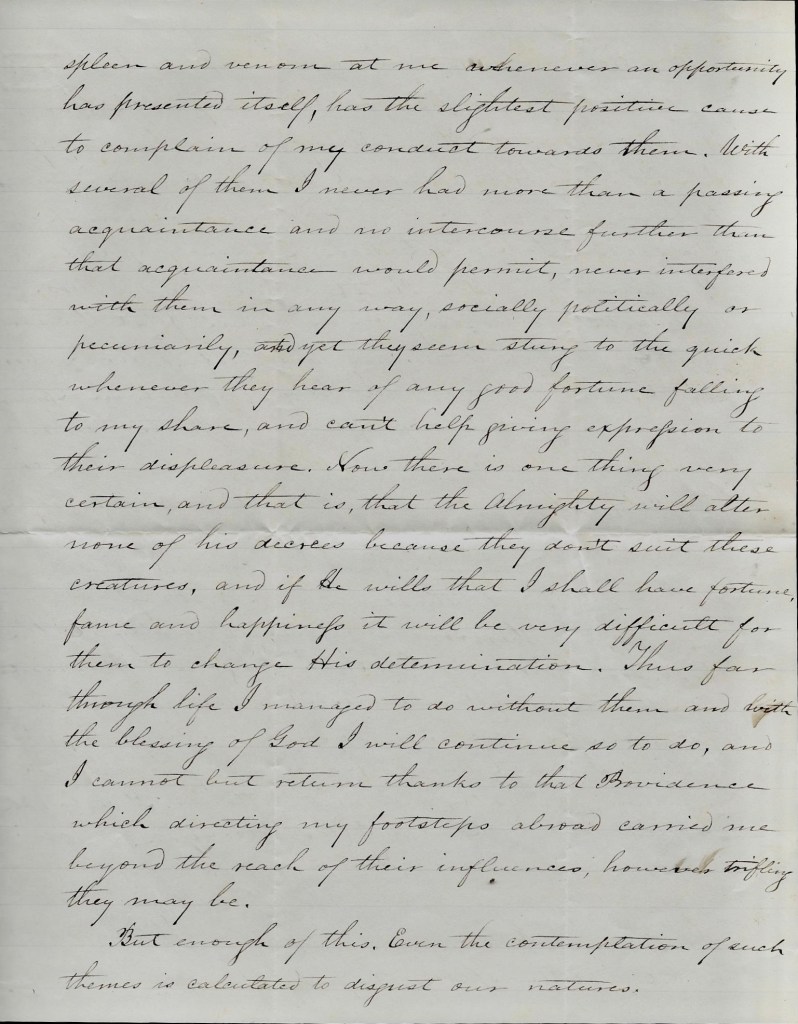 spleen and venom at me whenever an opportunity
has presented itself, has the slightest positive cause
to complain of my conduct towards them. With
several of them I never had more than a passing
acquaintance and no intercourse further than
that acquaintance would permit, never interfered
with them in any way, socially politically or
pecuniarily, and yet they seem stung to the quick
whenever they hear of any good fortune falling
to my share, and can't help giving expression to
their displeasure. Now there is one thing very
certain, and that is, that the Almighty will alter
none of his decrees because they don't suit these
creatures, and if He wills that I shall have fortune,
fame and happiness it will be very difficult for
them to change His determination. Thus far
through life I managed to do without them and with
the blessing of God I will continue so to do, and
I cannot but return thanks to that Providence
which directing my footsteps abroad carried me
beyond the reach of their influences, however trifling
they may be.
But enough of this. Even the contemplation of such
themes is calculated to disgust our natures.